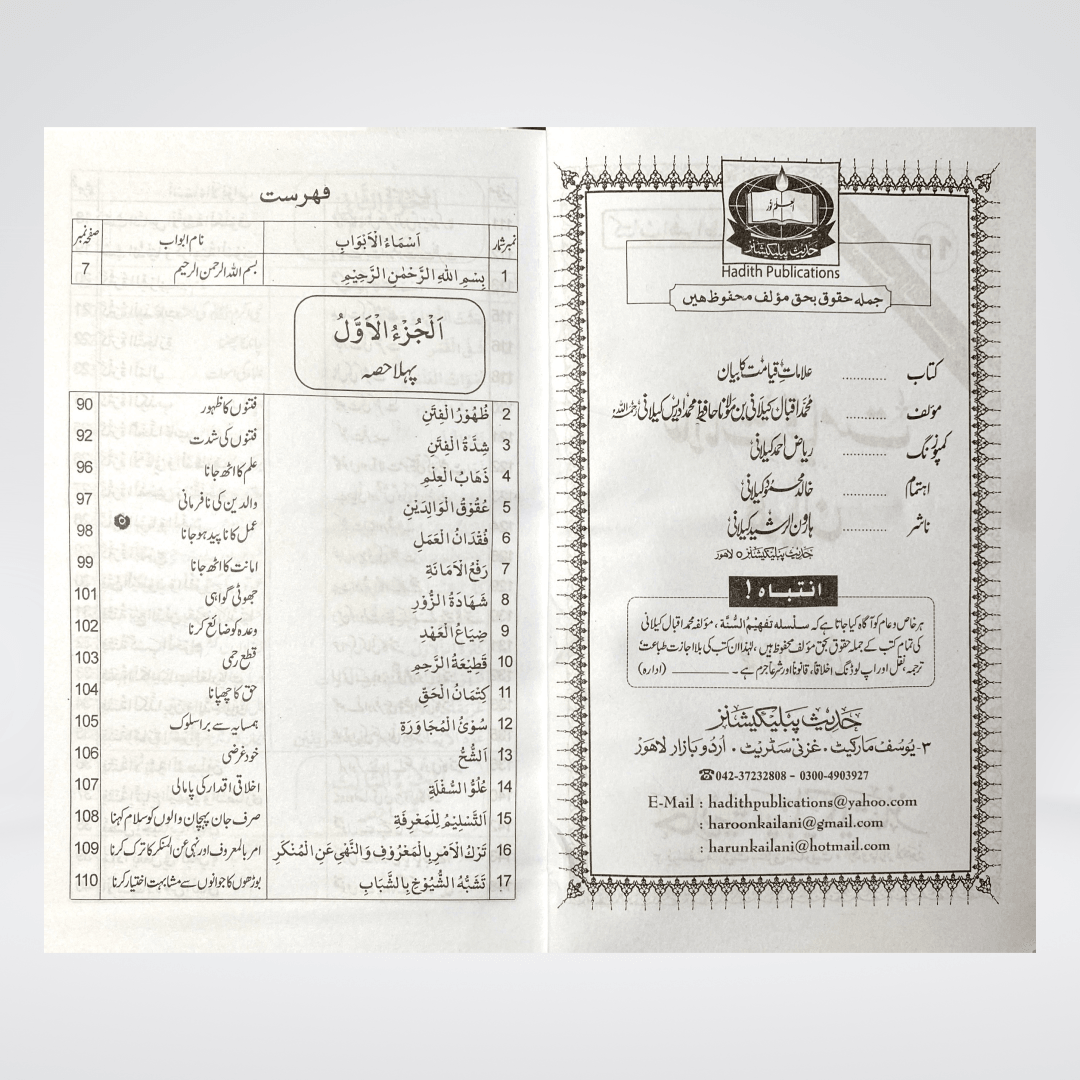 حدیث پبلیکیشنز
Hadith Publications
جملہ حقوق بحق مؤلف محفوظ ہیں
کتاب ............ علاماتِ قیامت کا بیان
مؤلف ............ محمد اقبال کیلانی بن مولانا حافظ محمد ادریس کیلانی رحمہ اللہ
کمپوزنگ ............ ریاض احمد کیلانی
اہتمام ............ خالد محمود کیلانی
ناشر ............ ہارون الرشید کیلانی
حدیث پبلیکیشنز ۵ لاہور
انتباہ!
ہر خاص و عام کو آگاہ کیا جاتا ہے کہ سلسلہ تفہیم السنۃ، مؤلفہ محمد اقبال کیلانی
کی تمام کتب کے جملہ حقوق بحق مؤلف محفوظ ہیں، لہٰذا ان کتب کی بلا اجازت طباعت،
ترجمہ، نقل اور اپ لوڈنگ اخلاقا، قانونا اور شرعا جرم ہے۔ ـــــــــ (ادارہ)
حدیث پبلیکیشنز
۳- یوسف مارکیٹ ۰ غزنی سٹریٹ ۰ اردو بازار لاہور
☎042-37232808 - 0300-4903927
E-Mail : hadithpublications@yahoo.com
: haroonkailani@gmail.com
: harunkailani@hotmail.com
فہرست
نمبر شمار اَسْمَاءُ الْاَبْوَابِ نام ابواب صفحہ نمبر
1 بِسْمِ اللّٰهِ الرَّحْمٰنِ الرَّحِیْمِ بسم اللہ الرحمن الرحیم 7
اَلْجُزْءُ الْاَوَّلُ
پہلا حصہ
2 ظُهُوْرُ الْفِتَنِ فتنوں کا ظہور 90
3 شِدَّةُ الْفِتَنِ فتنوں کی شدت 92
4 ذَهَابُ الْعِلْمِ علم کا اٹھ جانا 96
5 عُقُوْقُ الْوَالِدَیْنِ والدین کی نافرمانی 97
6 فُقْدَانُ الْعَمَلِ عمل کا ناپید ہو جانا 98
7 رَفْعُ الْاَمَانَةِ امانت کا اٹھ جانا 99
8 شَهَادَةُ الزُّوْرِ جھوٹی گواہی 101
9 ضِیَاعُ الْعَهْدِ وعدہ کو ضائع کرنا 102
10 قَطِیْعَةُ الرَّحِمِ قطع رحمی 103
11 كِتْمَانُ الْحَقِّ حق کا چھپانا 104
12 سُوْئُ الْمُجَاوَرَةِ ہمسایہ سے برا سلوک 105
13 اَلشُّحُّ خود غرضی 106
14 عُلُوُّ السُّفْلَةِ اخلاقی اقدار کی پامالی 107
15 اَلتَّسْلِیْمُ لِلْمَعْرِفَةِ صرف جان پہچان والوں کو سلام کہنا 108
16 تَرْكُ الْاَمْرِ بِالْمَعْرُوْفِ وَ النَّهْیِ عَنِ الْمُنْكَرِ امر بالمعروف اور نہی عن المنکر کا ترک کرنا 109
17 تَشَبُّهُ الشُّیُوْخِ بِالشَّبَابِ بوڑھوں کا جوانوں سے مشابہت اختیار کرنا 110